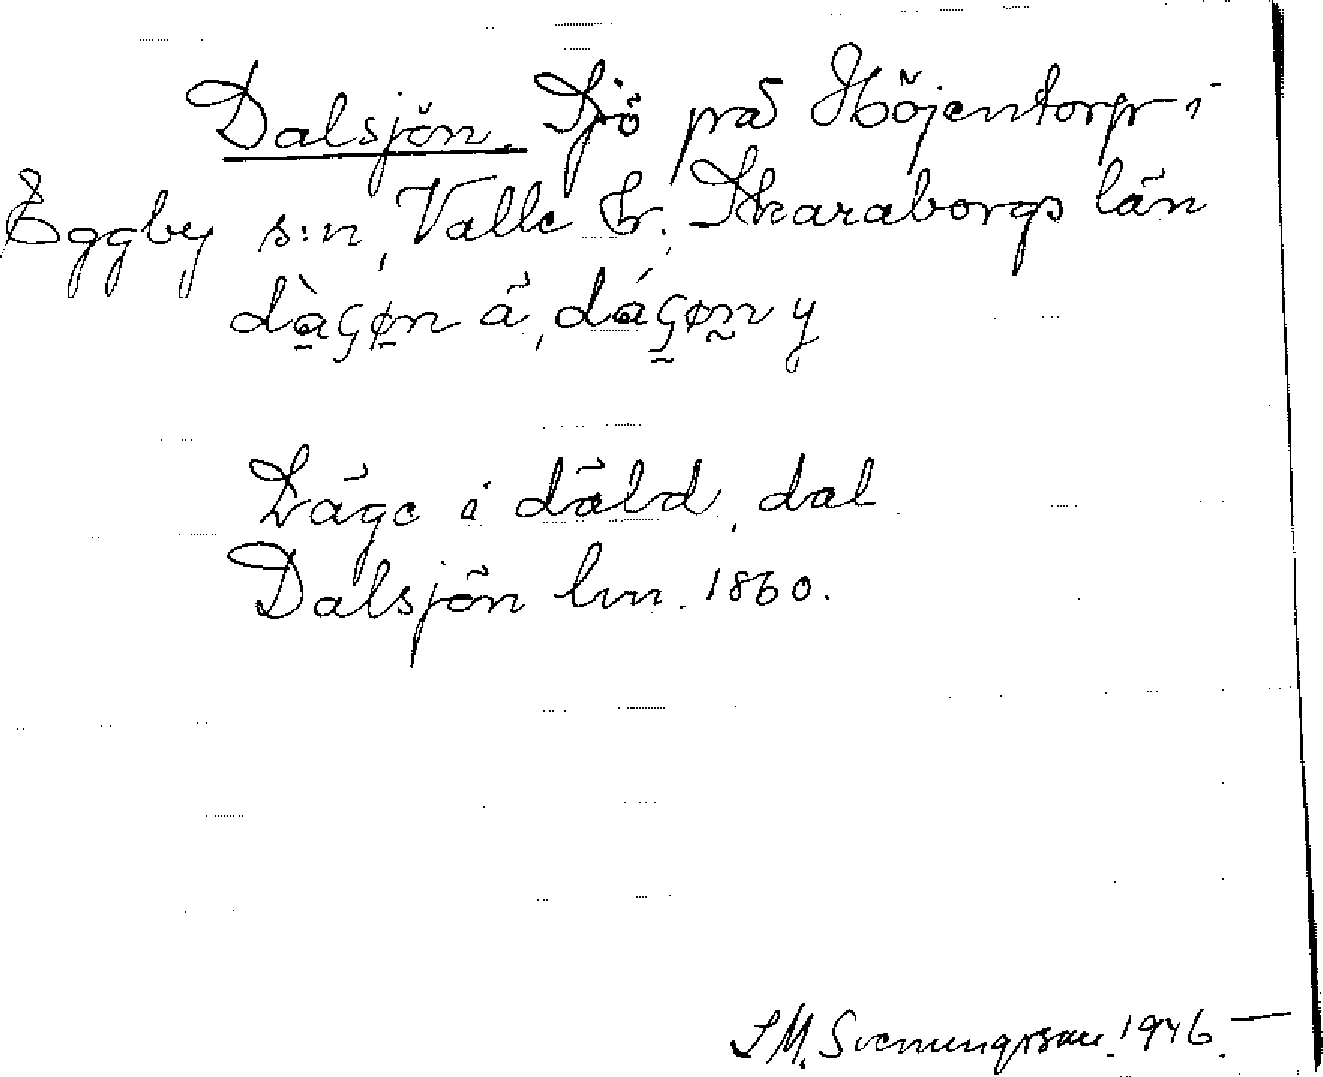 Dalsjön. Sjö på Höjentorp i
Eggby s:n, Valle hr, Skaraborgs län
å, y
Läge i däld, dal
Dalsjön lm. 1860.
S M. Svenungsson. 1946.